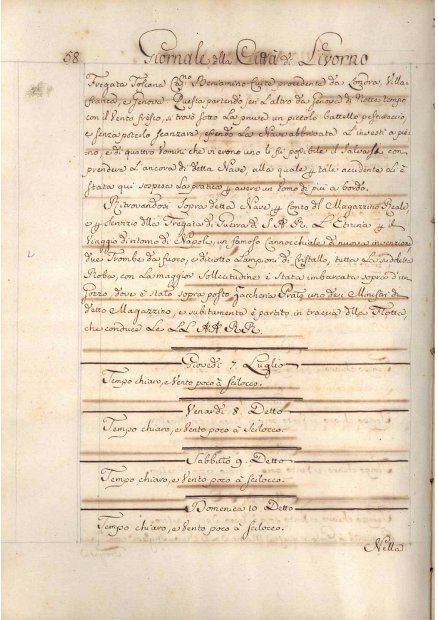 58
Giornale della Città di Livorno
Fregata Toscana Capno Beniamino Curtè procedente da Londra, Villa-
franca, e Genova Questa partendo jeri l'altro da Genova di Notte tempo
con il Vento fresco, si trovò sotto la prua un piccolo battello peschereccio,
e senza poterlo scanzare, essendo la Nave abbrivata l'investì a pie-
no, e di quattro Uomini che vi erono uno le fù possibile il salvarsi con
prendere l'ancora di detta Nave, alla quale p tale accidente le è
stata qui sospesa la pratica p avere un Uomo di più a bordo.
Ritrovandosi sopra detta Nave p Conto del Magazzino Reale,
e p servizio della Fregata di Guerra di S. A. R. L'Etruria p il
Viaggio di ritorno di Napoli, un famoso Cannocchiale di nuova invenzione
due Trombe da fuoco, e diciotto Lampioni di Cristallo, tutta la sudetta
Roba, con la maggior Sollecitudine è stata imbarcata sopra di un
Gozzo, dove è stato sopra posto Zaccheria Prato uno dei Ministri di
detto Magazzino, e subitamente è partito in traccia della Flotta
che conduce Le LL. AA. RR.
Giovedì 7. Luglio
Tempo chiaro, e Vento poco à Scilocco.
Venardì 8. Detto
Tempo chiaro, e Vento poco à Scilocco.
Sabbato 9. Detto
Tempo chiaro, e Vento poco à Scilocco.
Domenica 10. Detto
Tempo chiaro, e Vento poco à Scilocco.
Nella